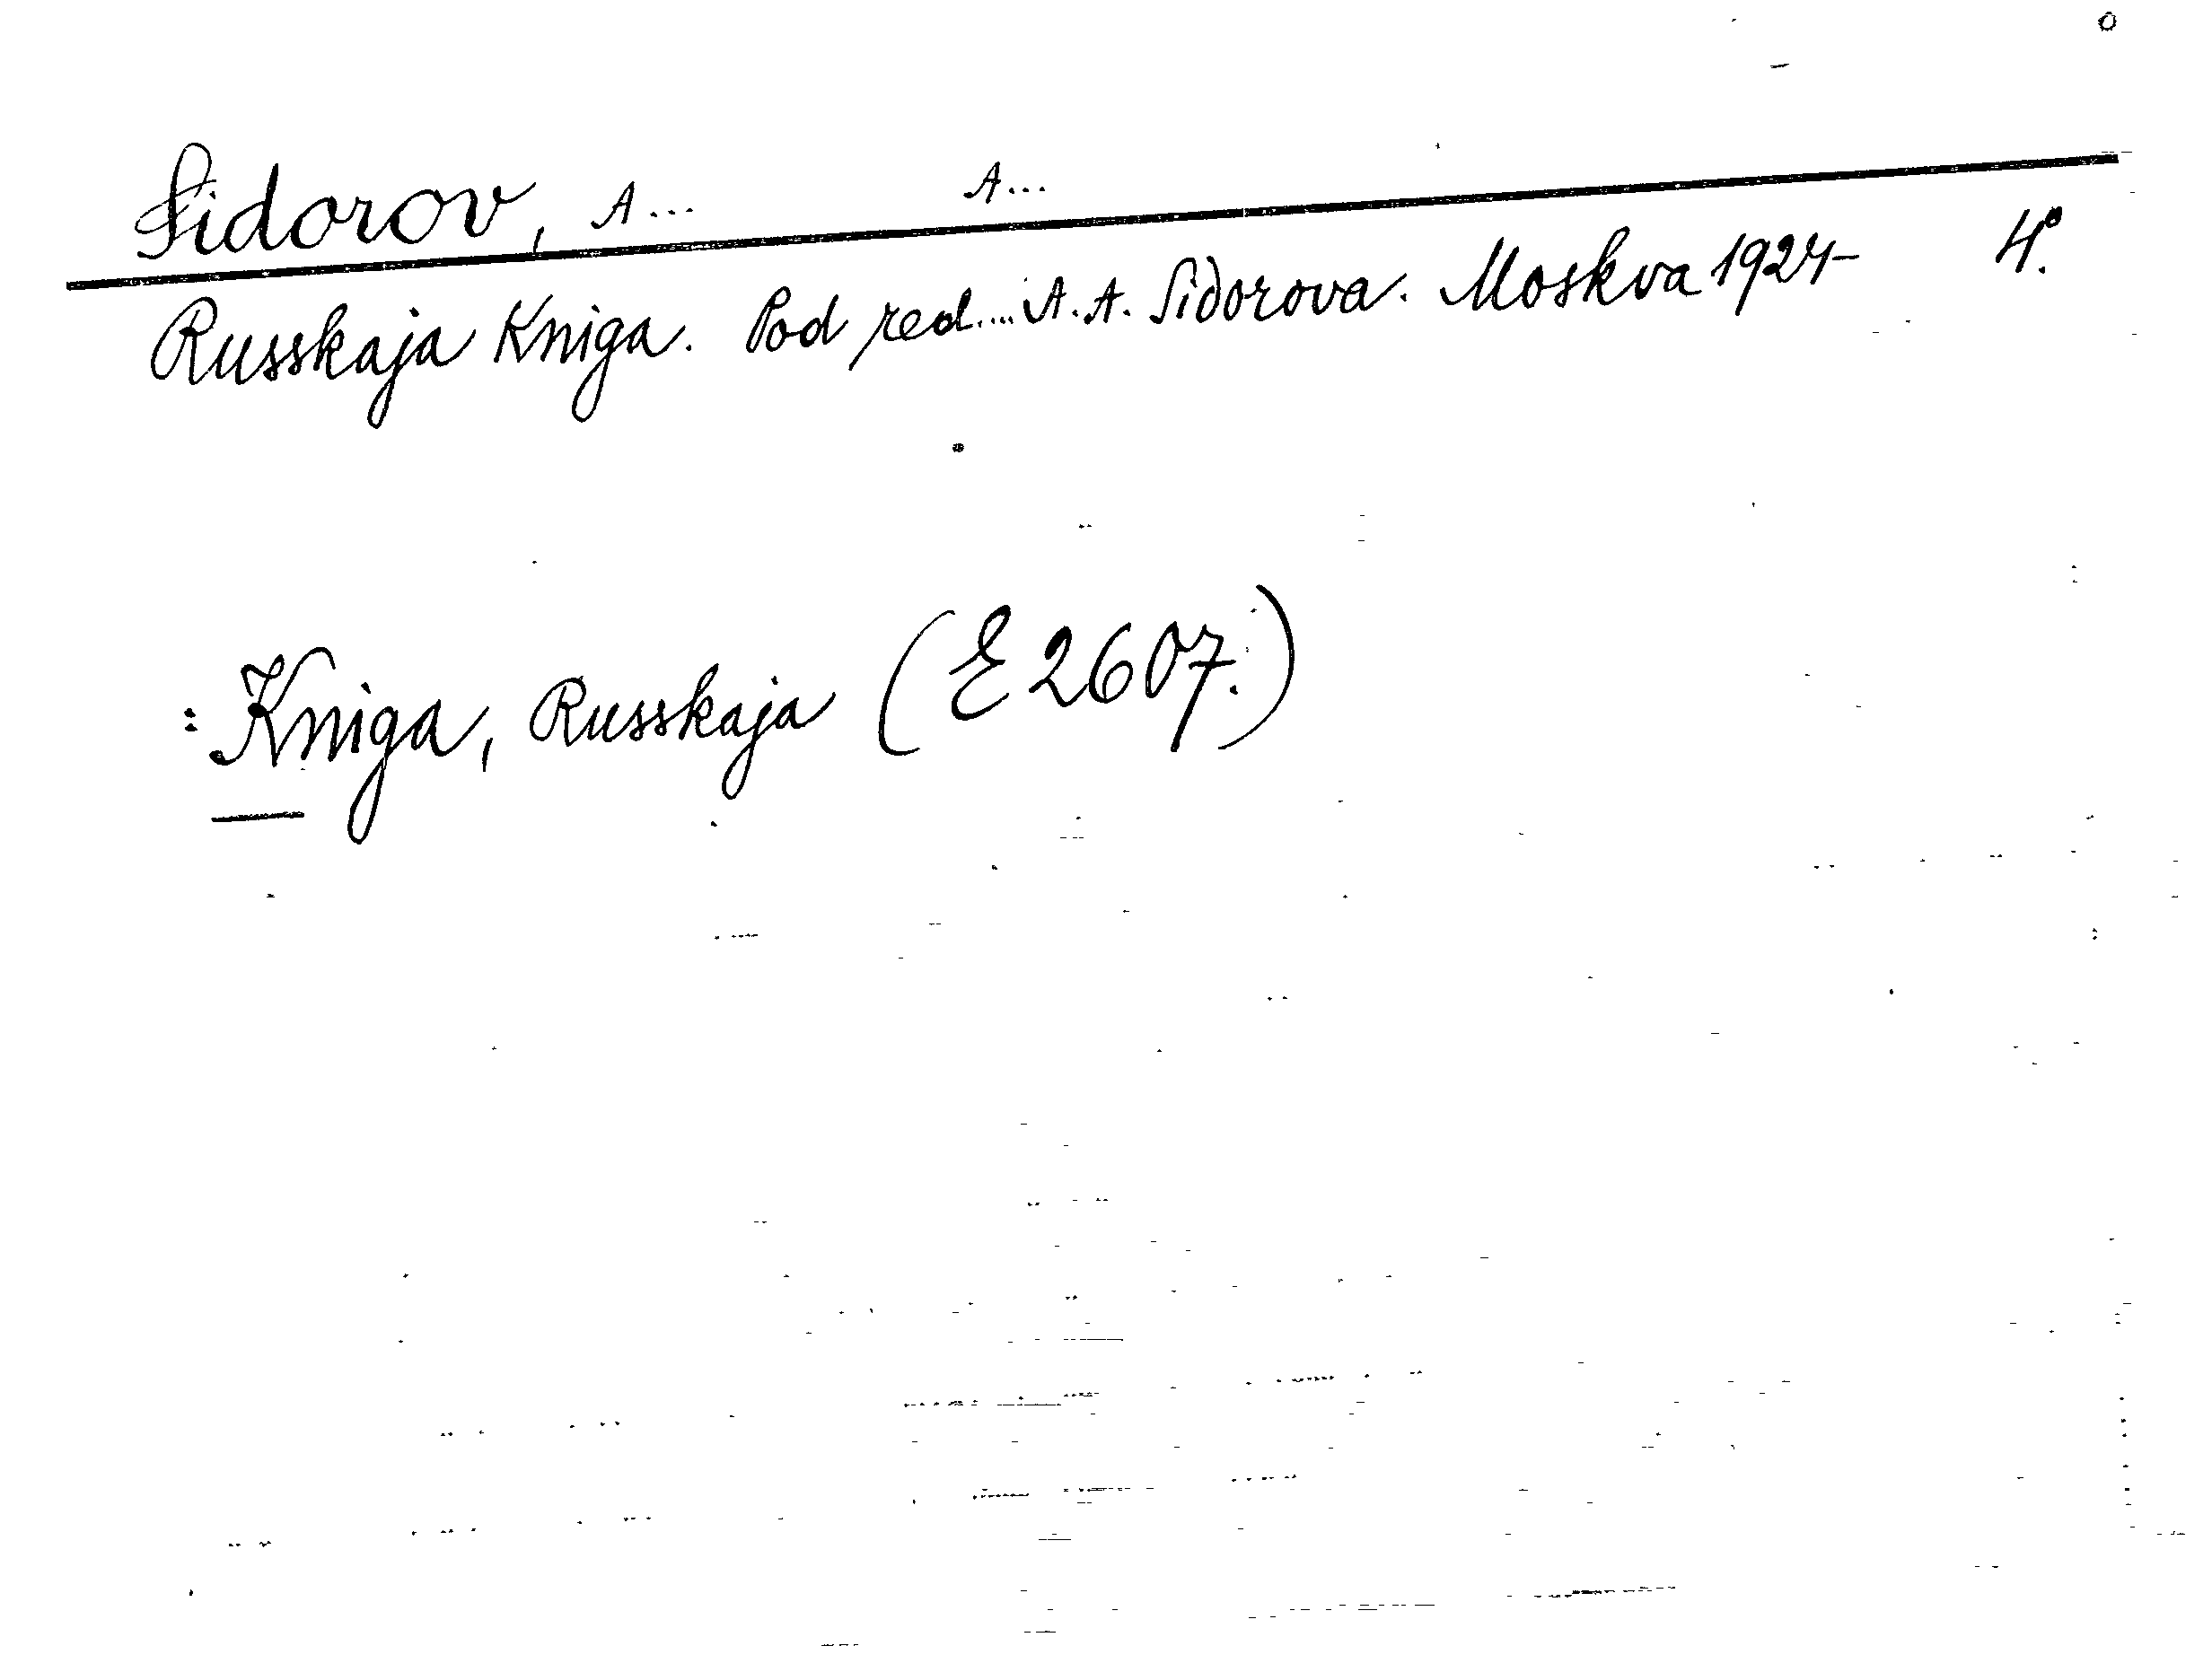 Sidorov, A... A...
Russkaja Kniga. Pod red.... A. A. Sidorova. Moskva 1924- 4°.
: Kniga, Russkaja (E 2607.)